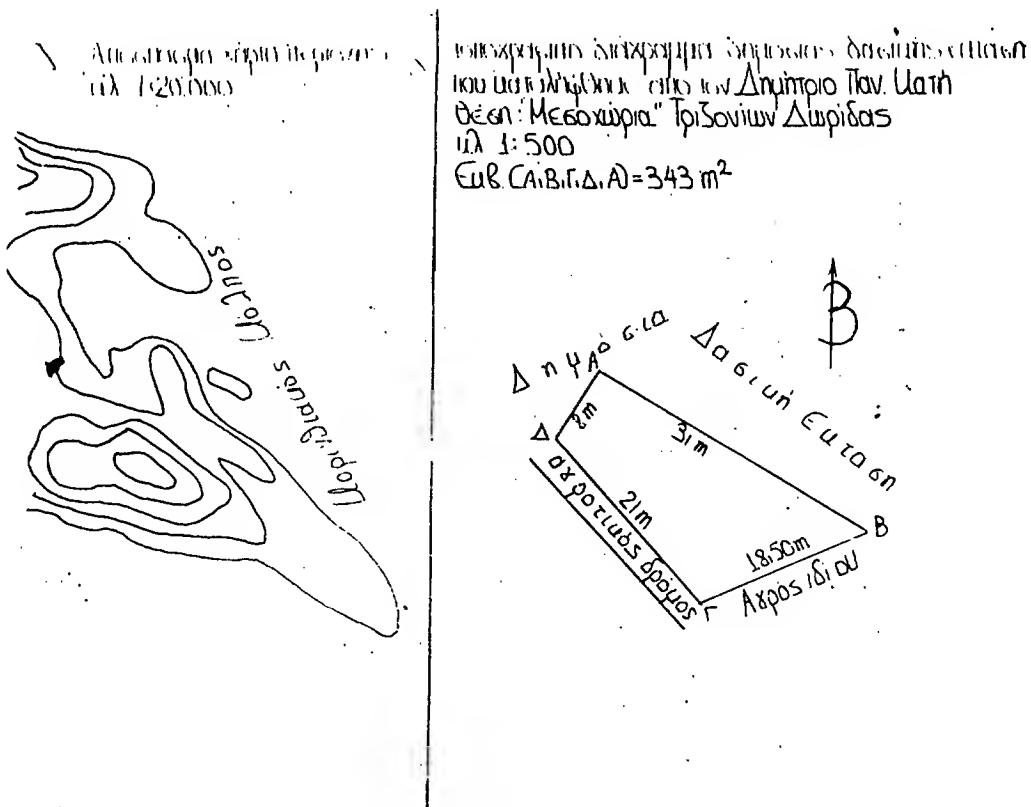 Απόσπασμα χάρτη περιοχής
κλ 1:20.000
Κορινθιακός Κόλπος
τοπογραφικό διάγραμμα δημοσίας δασικής έκτασης
που καταλήφθηκε από τον Δημήτριο Παν. Κατή
Θέση: "Μεσοχώρια" Τριζονίων Δωρίδας
κλ 1:500
Εμβ. (Α.Β.Γ.Δ.Α) = 343 m²
Β
Δημόσια Δασική Έκταση
Α
8m
31m
Δ
21m
αγροτικός δρόμος
18,50m
Β
Γ
Αγρός ιδίου